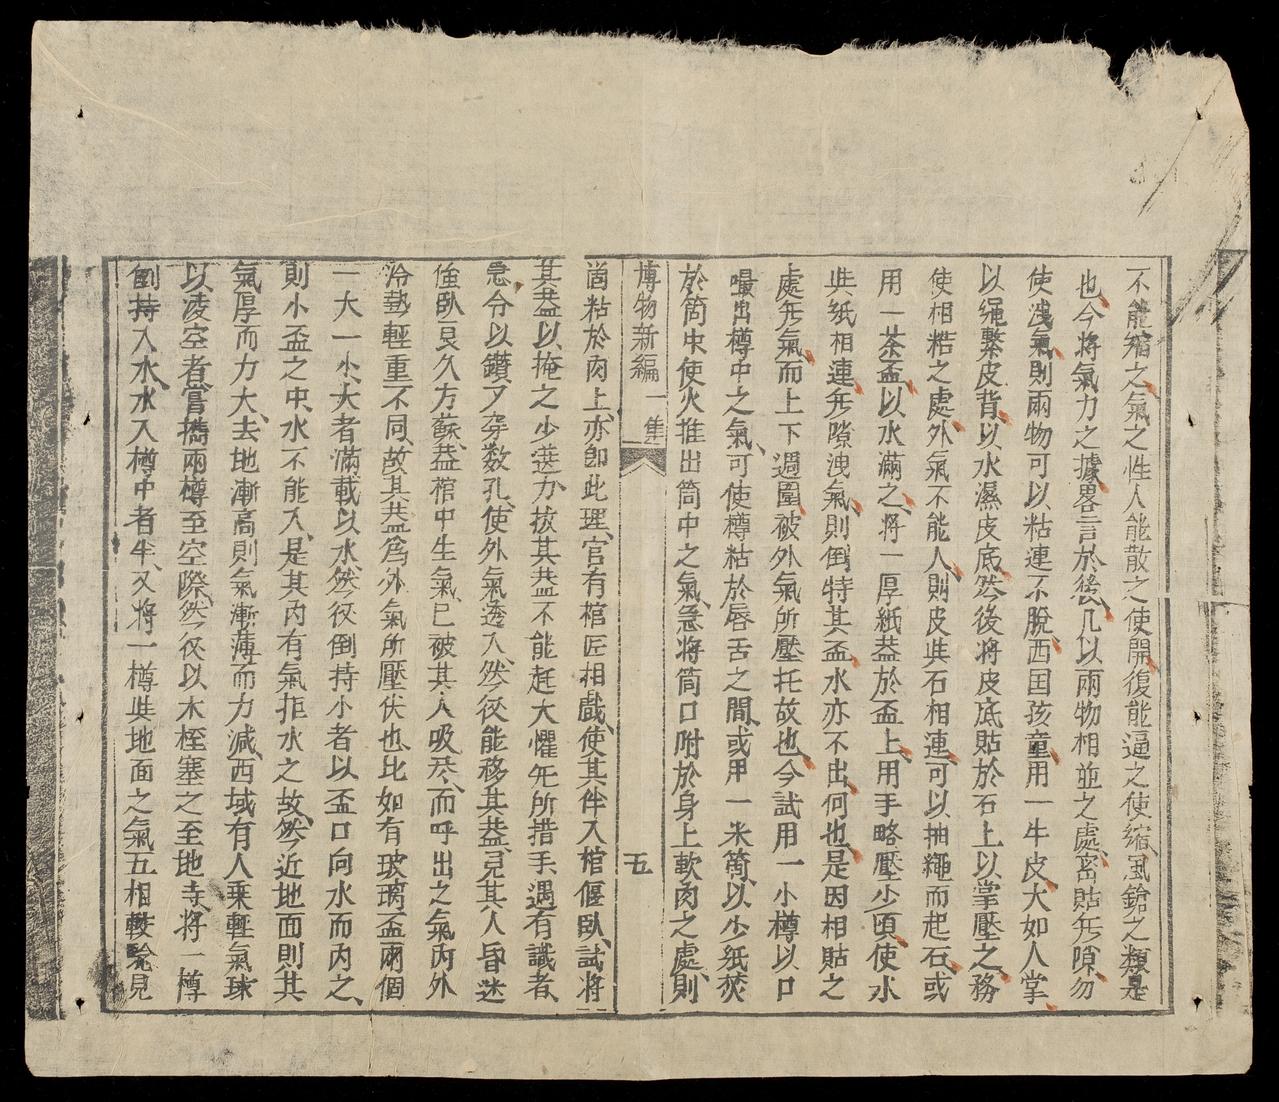 不能縮之氣之性人能散之使開復能逼之使縮風鎗之類是
也今將氣力之據畧言於後凡以兩物相並之處密貼旡隙勿
使洩氣則兩物可以粘連不脫西国孩童用一牛皮大如人掌
以繩繫皮背以水濕皮底然後將皮底貼於石上以掌壓之務
使相粘之處外氣不能人則皮与石相連可以抽繩而起石或
用一茶盃以水滿之將一厚紙葢於盃上用手略壓少頃使水
与紙相連旡隙洩氣則倒持其盃水亦不出何也是因相貼之
處旡氣而上下週圍被外氣所壓托故也今試用一小樽以口
嘬出樽中之氣可使樽粘於唇舌之間或用一米筒以少紙焚
於筒中使火推出筒中之氣急將筒口附於身上軟肉之處則
博物新編 一集 五
筒粘於肉上亦卽此理官有棺匠相戲使其伴入棺偃臥試將
其葢以掩之少選力拔其葢不能起大懼旡所措手遇有識者
急令以鑽刀穿数孔使外氣透入然後能移其葢見其人昏迷
僵臥良久方蘇葢棺中生氣已被其人吸尽而呼出之氣內外
冷熱輕重不同故其葢爲外氣所壓伏也比如有玻璃盃兩個
一大一小大者滿載以水然後倒持小者以盃口向水而內之
則小盃之中水不能入是其內有氣拒水之故然近地面則其
氣厚而力大去地漸高則氣漸薄而力減西域有人乘輕氣球
以凌空者嘗携兩樽至空際然後以木桎塞之至地寺將一樽
倒持入水水入樽中者半又將一樽与地面之氣互相較驗見